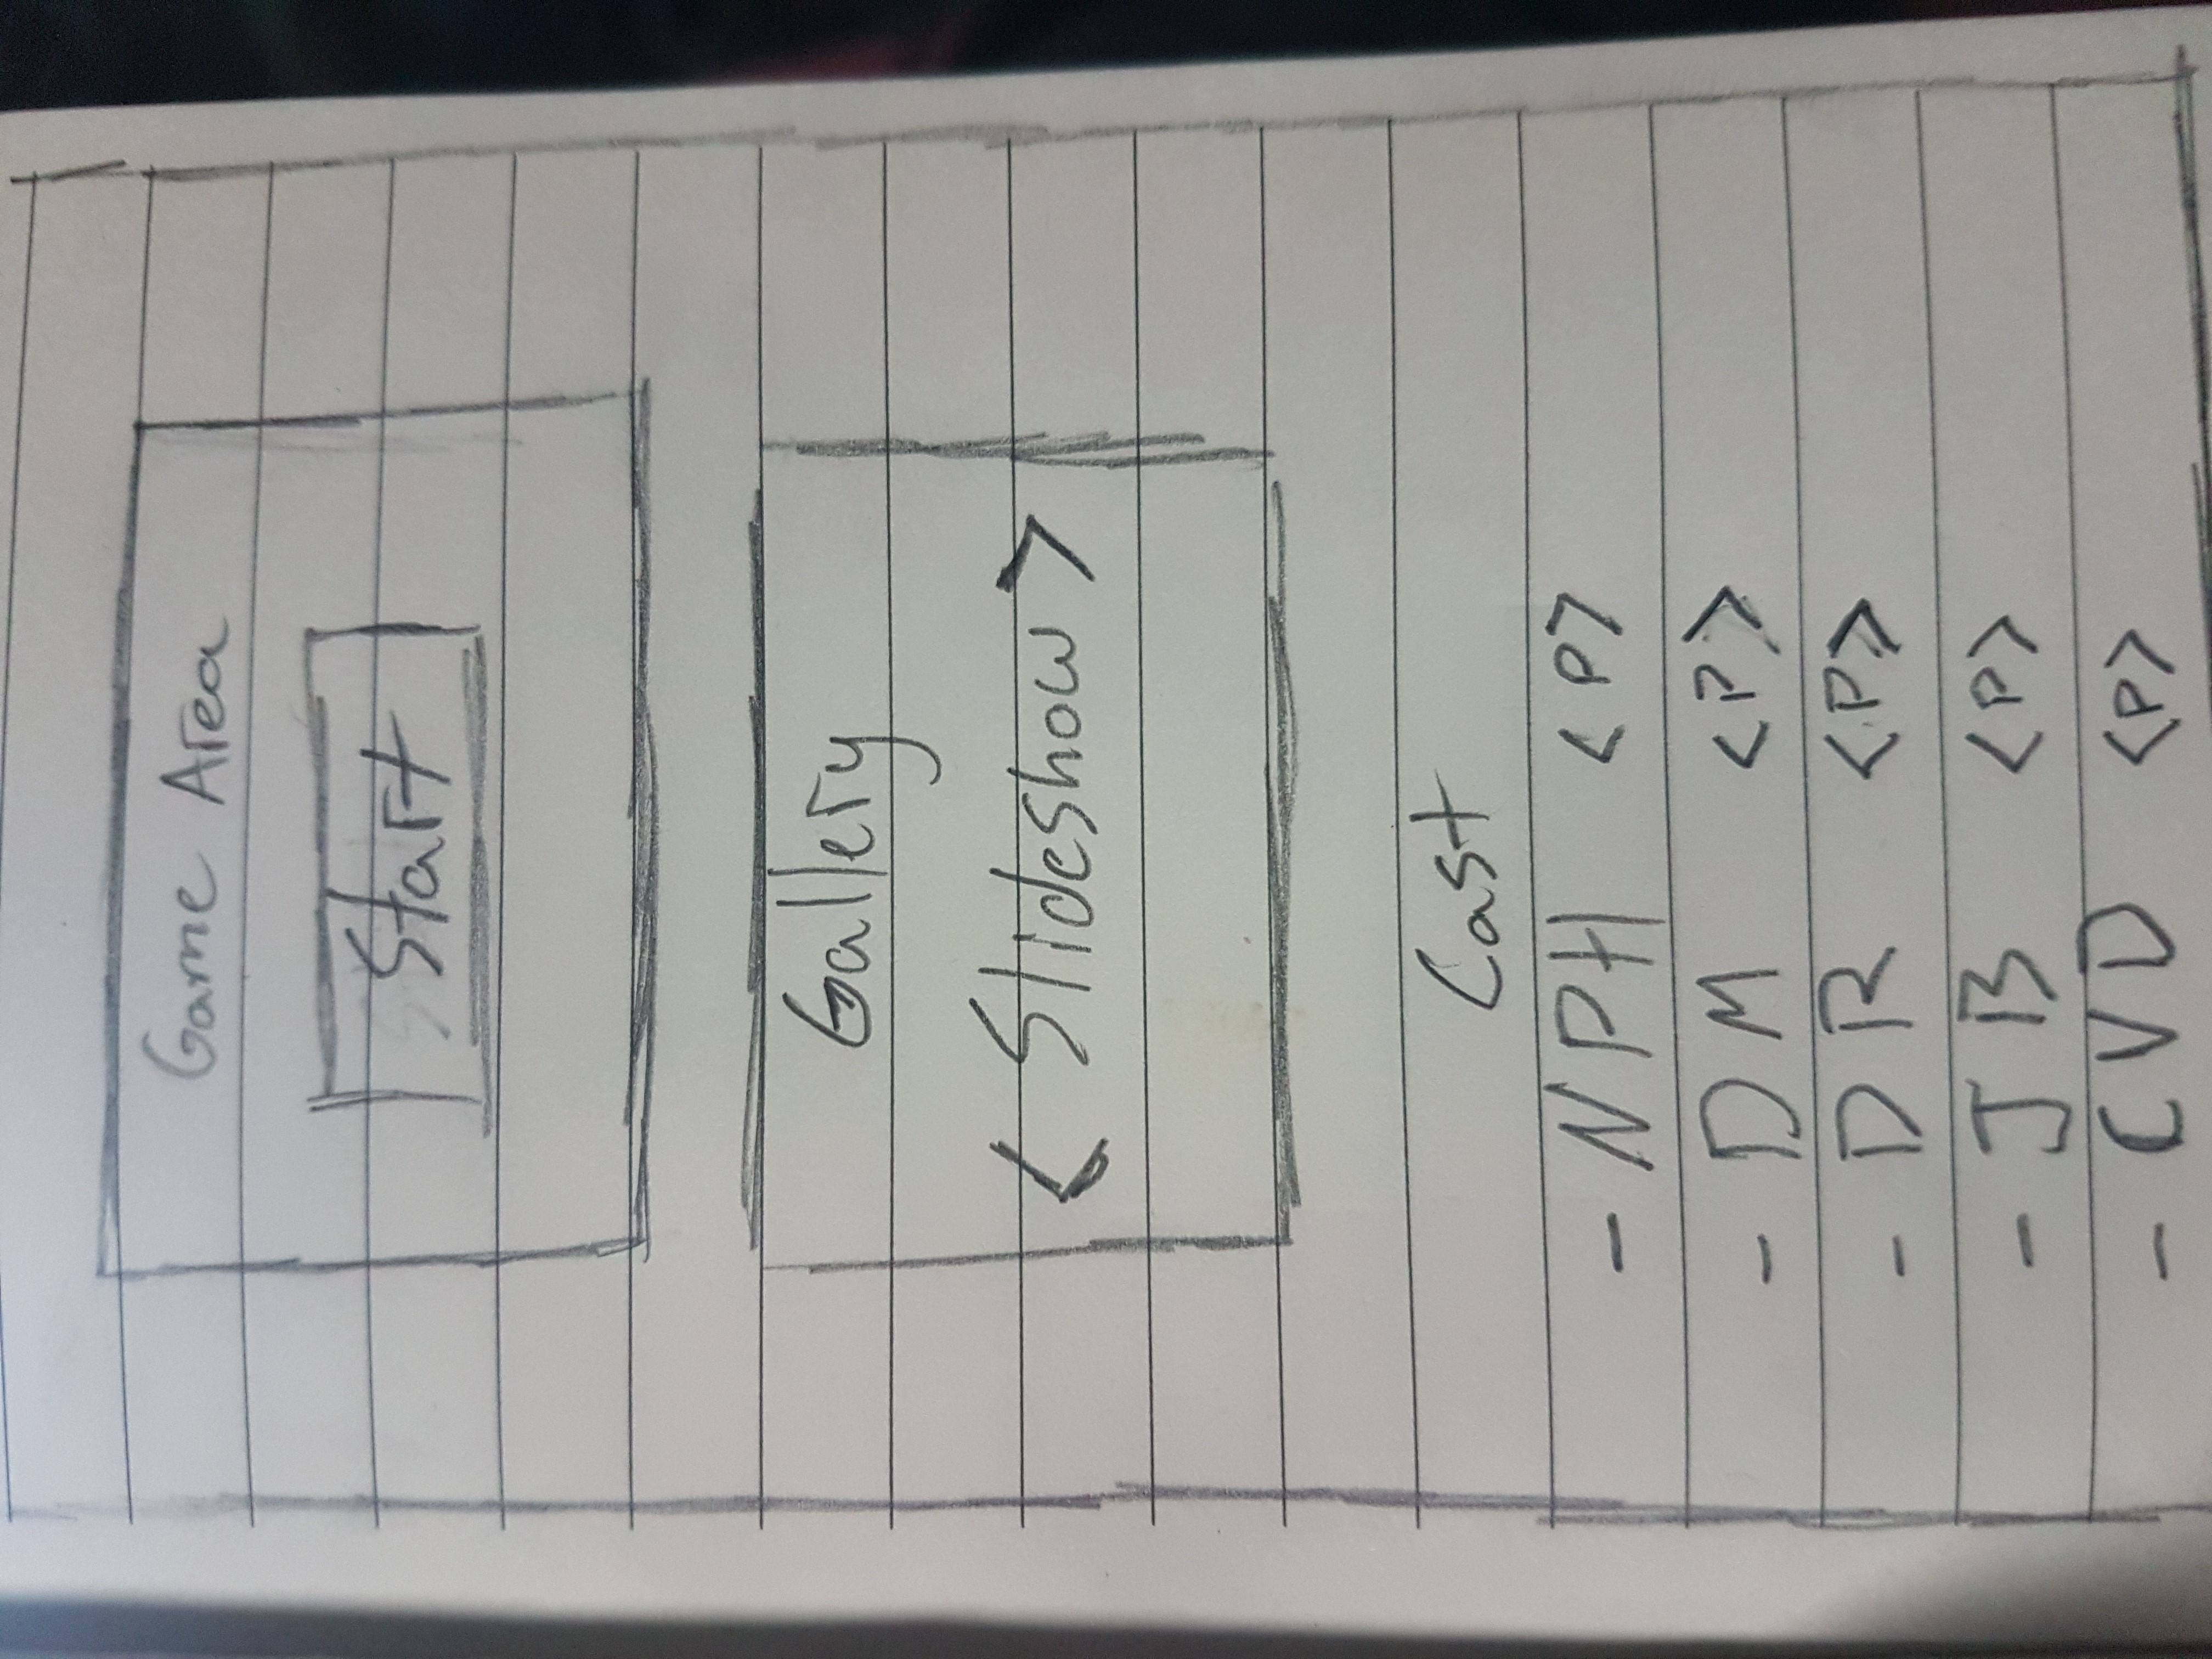 Game Area
Start
Gallery
< Slideshow >
Cast
- NPH <P>
- DM <P>
- DR <P>
- JB <P>
- CVD <P>